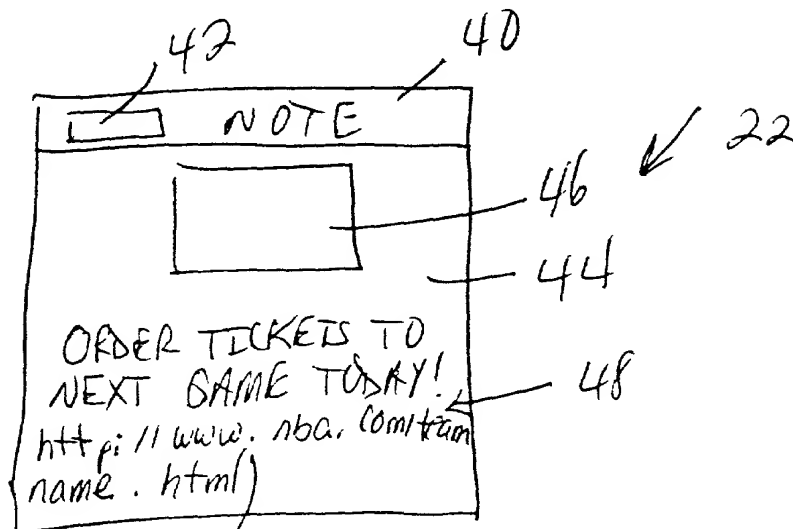 42
40
NOTE
22
46
44
ORDER TICKETS TO
NEXT GAME TODAY!
48
http://www.nba.com/team
name.html